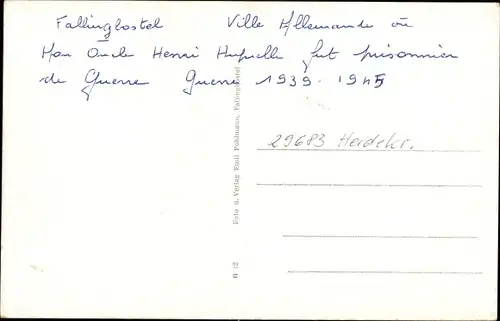 Fallinglostel Ville Allemande où
Mon Oncle Henri Hupelle fut prisonnier
de Guerre Guerre 1939-1945
29683 Heidekr.
Foto u. Verlag Emil Pohlmann, Fallingbostel